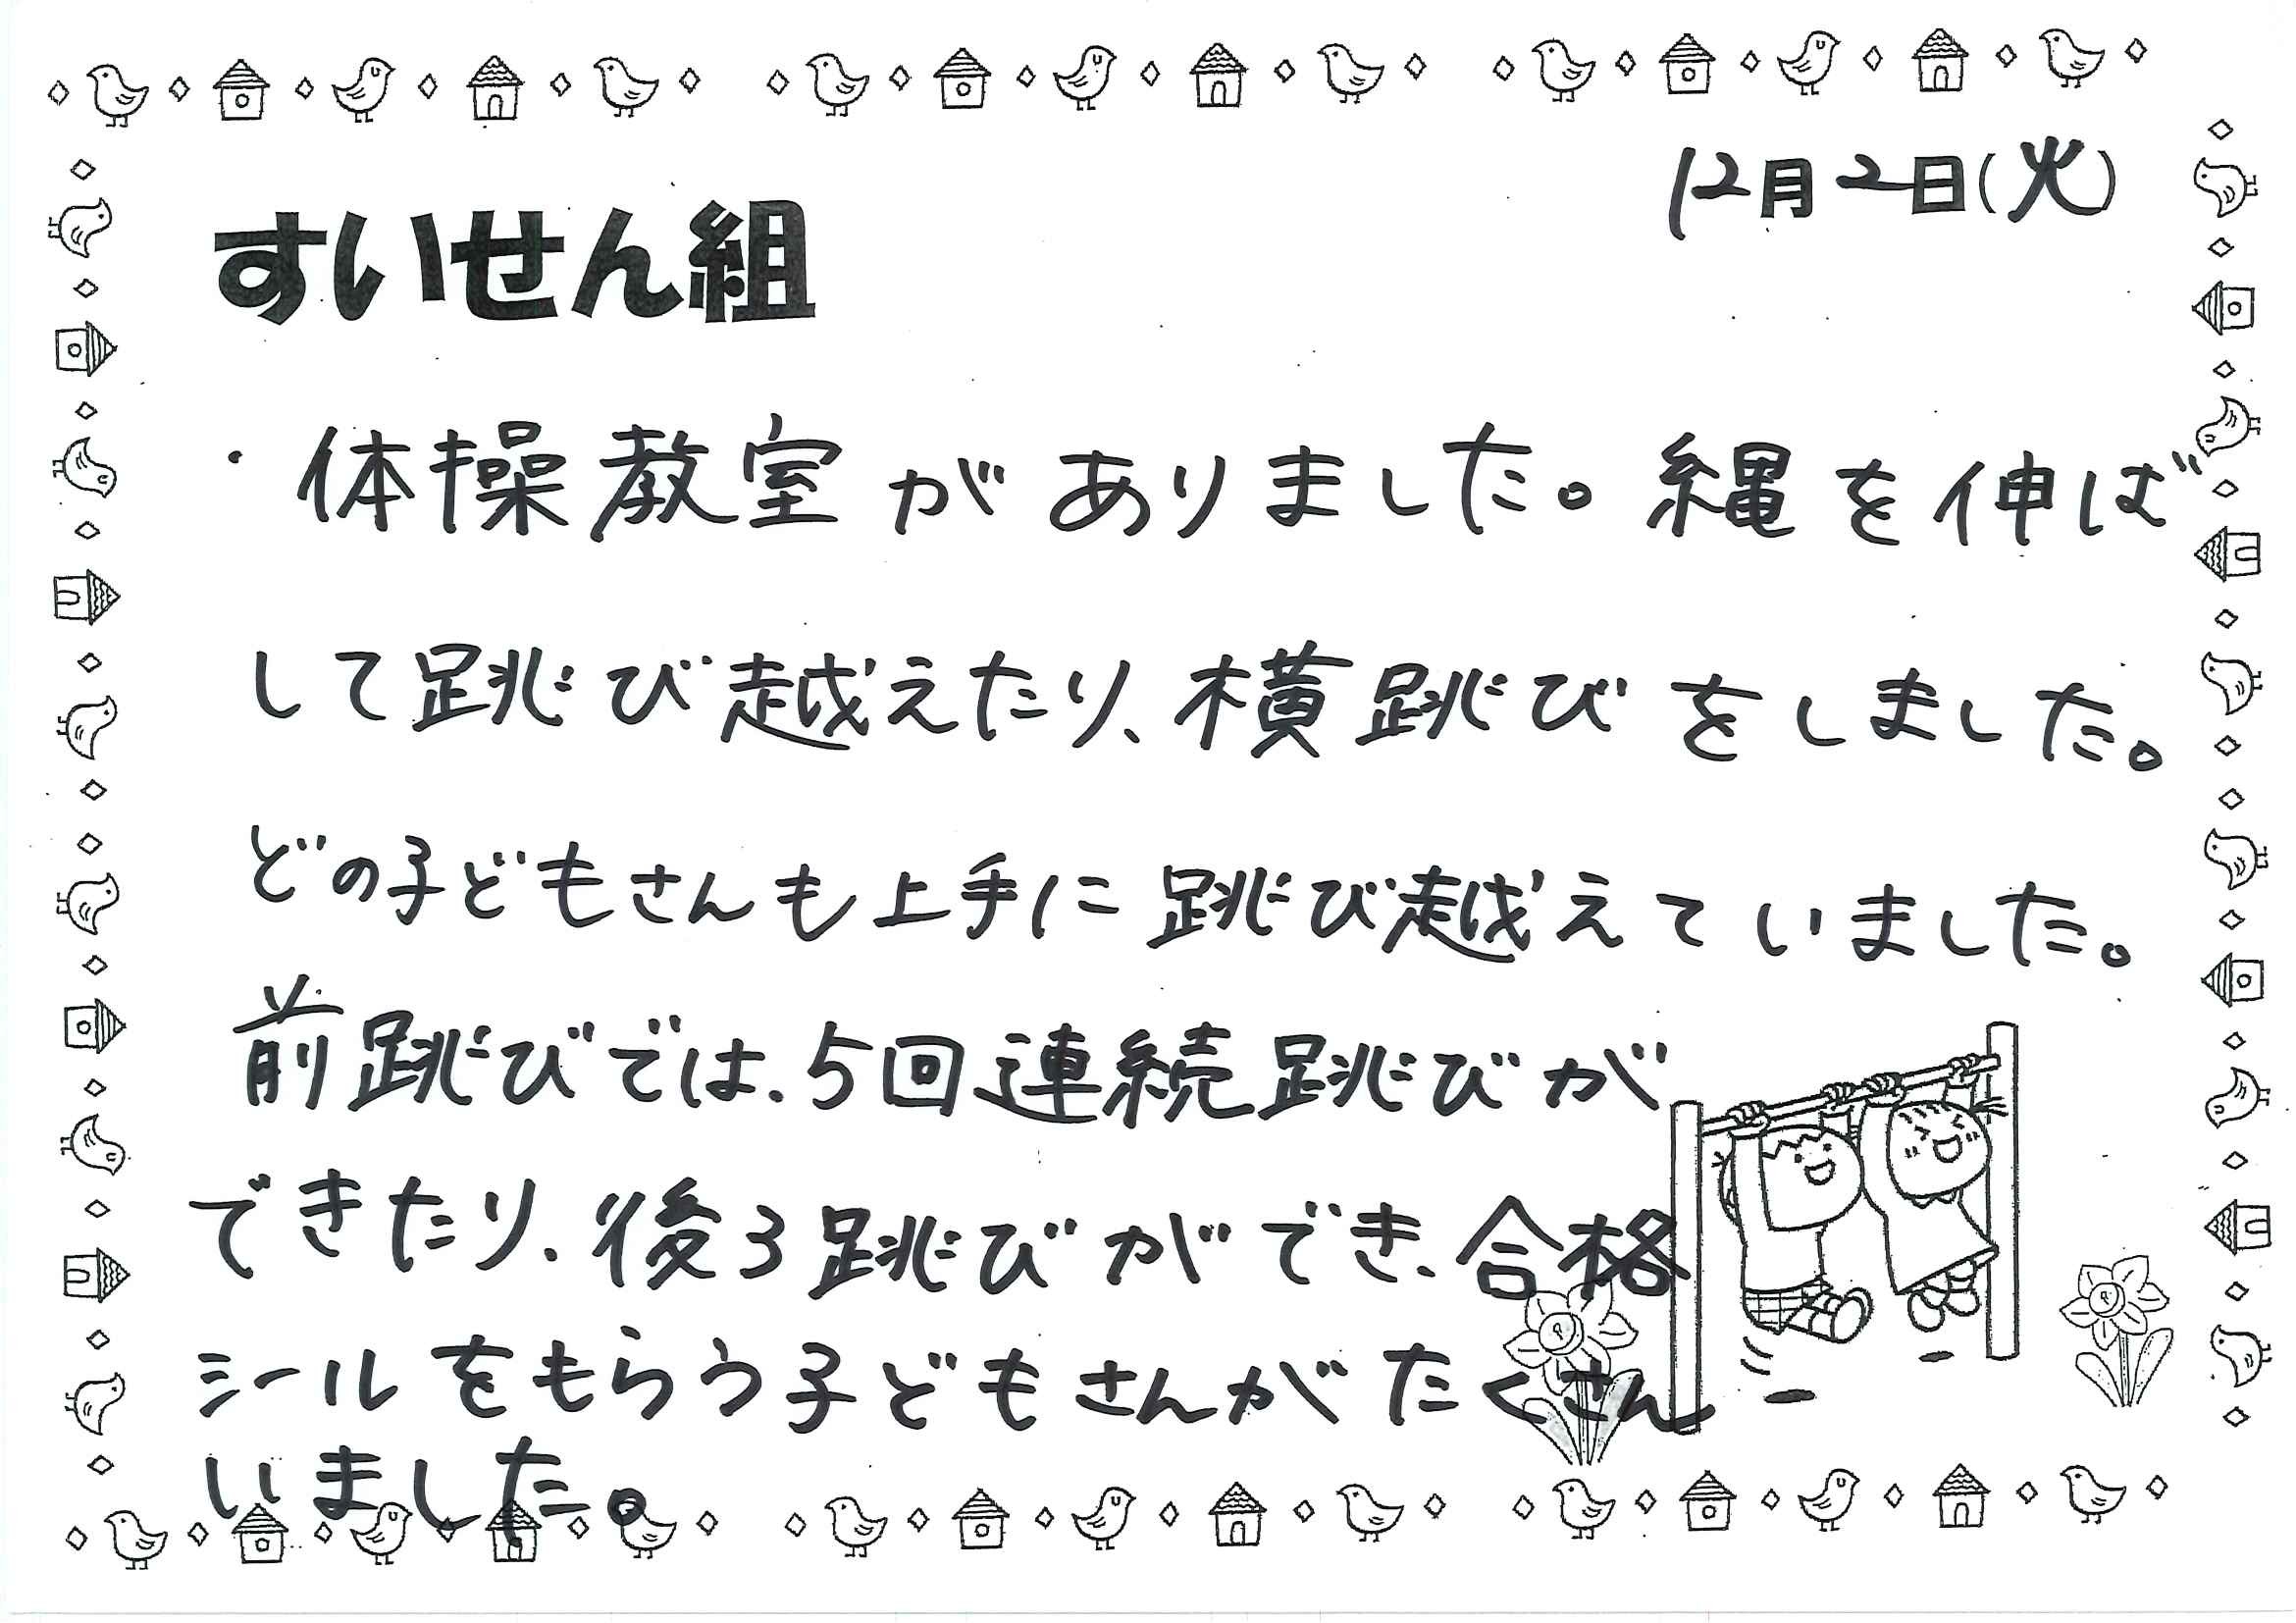 12月2日(火)
すいせん組
・体操教室がありました。縄を伸ば
して跳び越えたり、横跳びをしました。
どの子どもさんも上手に跳び越えていました。
前跳びでは、5回連続跳びが
できたり、後ろ跳びができ、合格
シールをもらう子どもさんがたくさん
いました。